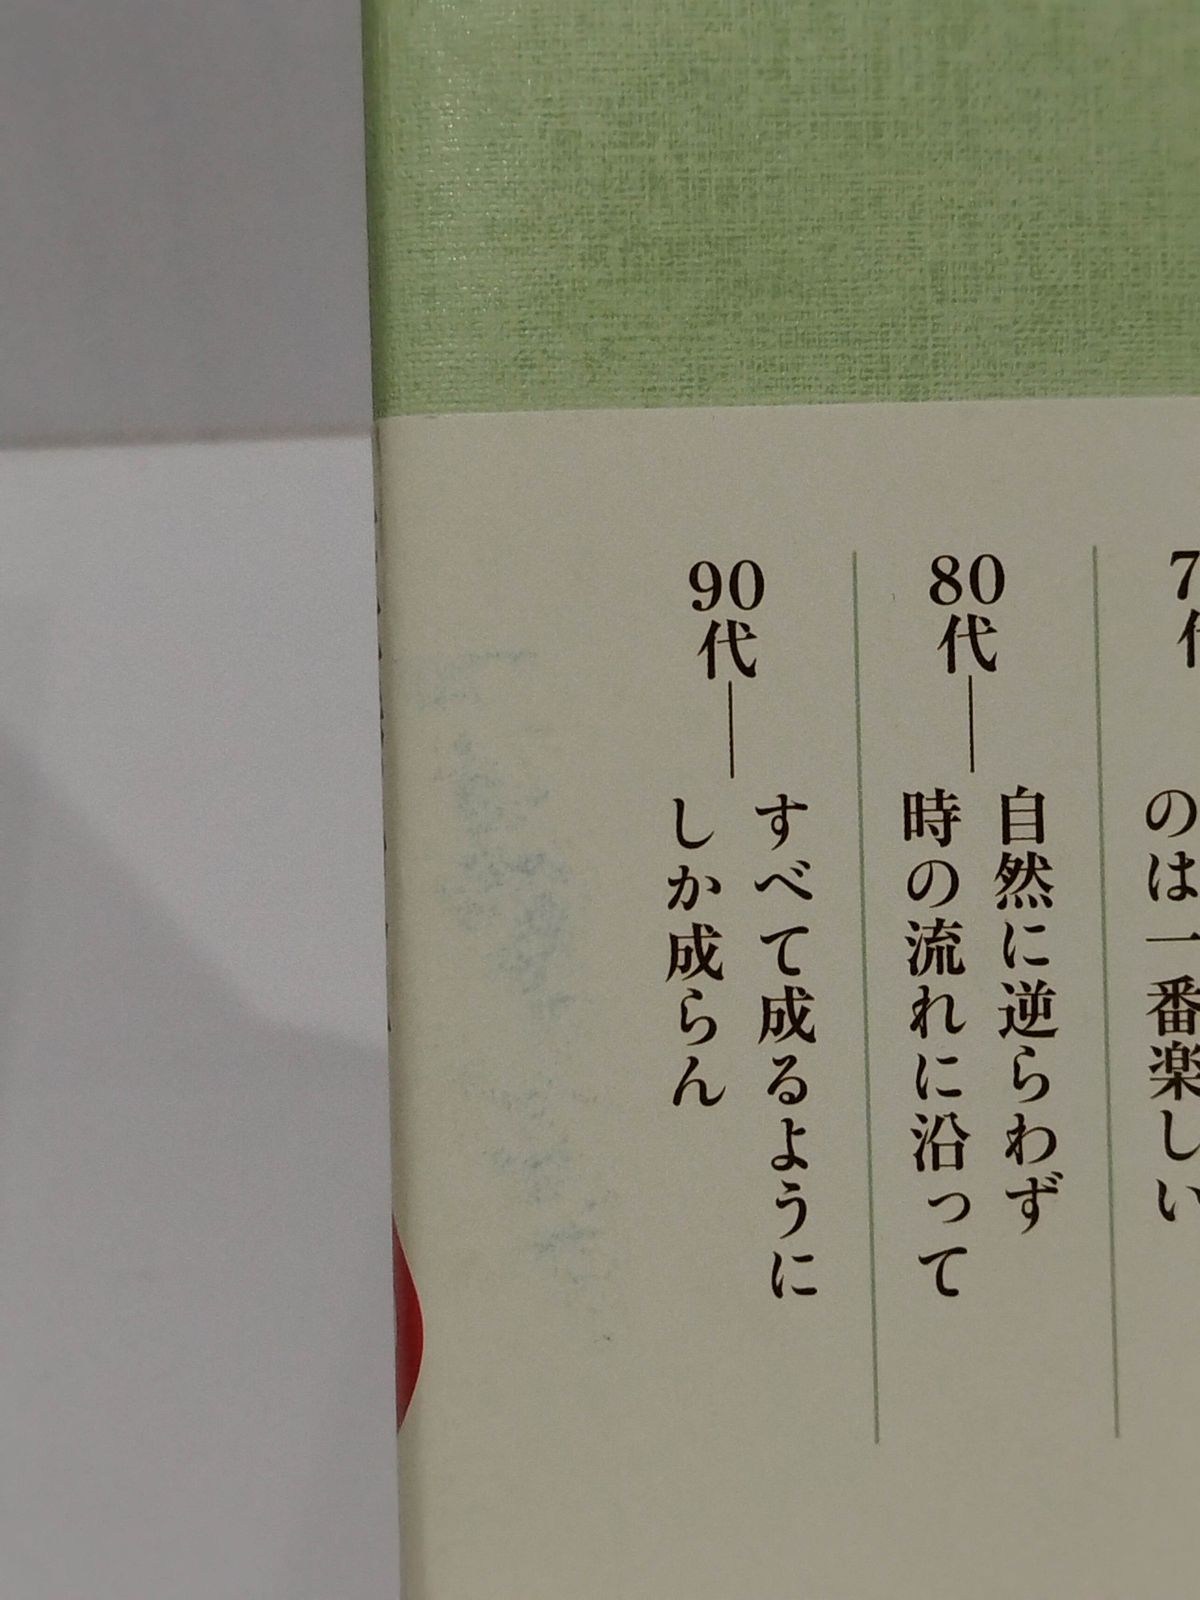 のは一番楽しい
80代——
自然に逆らわず
時の流れに沿って
90代——
すべて成るように
しか成らん